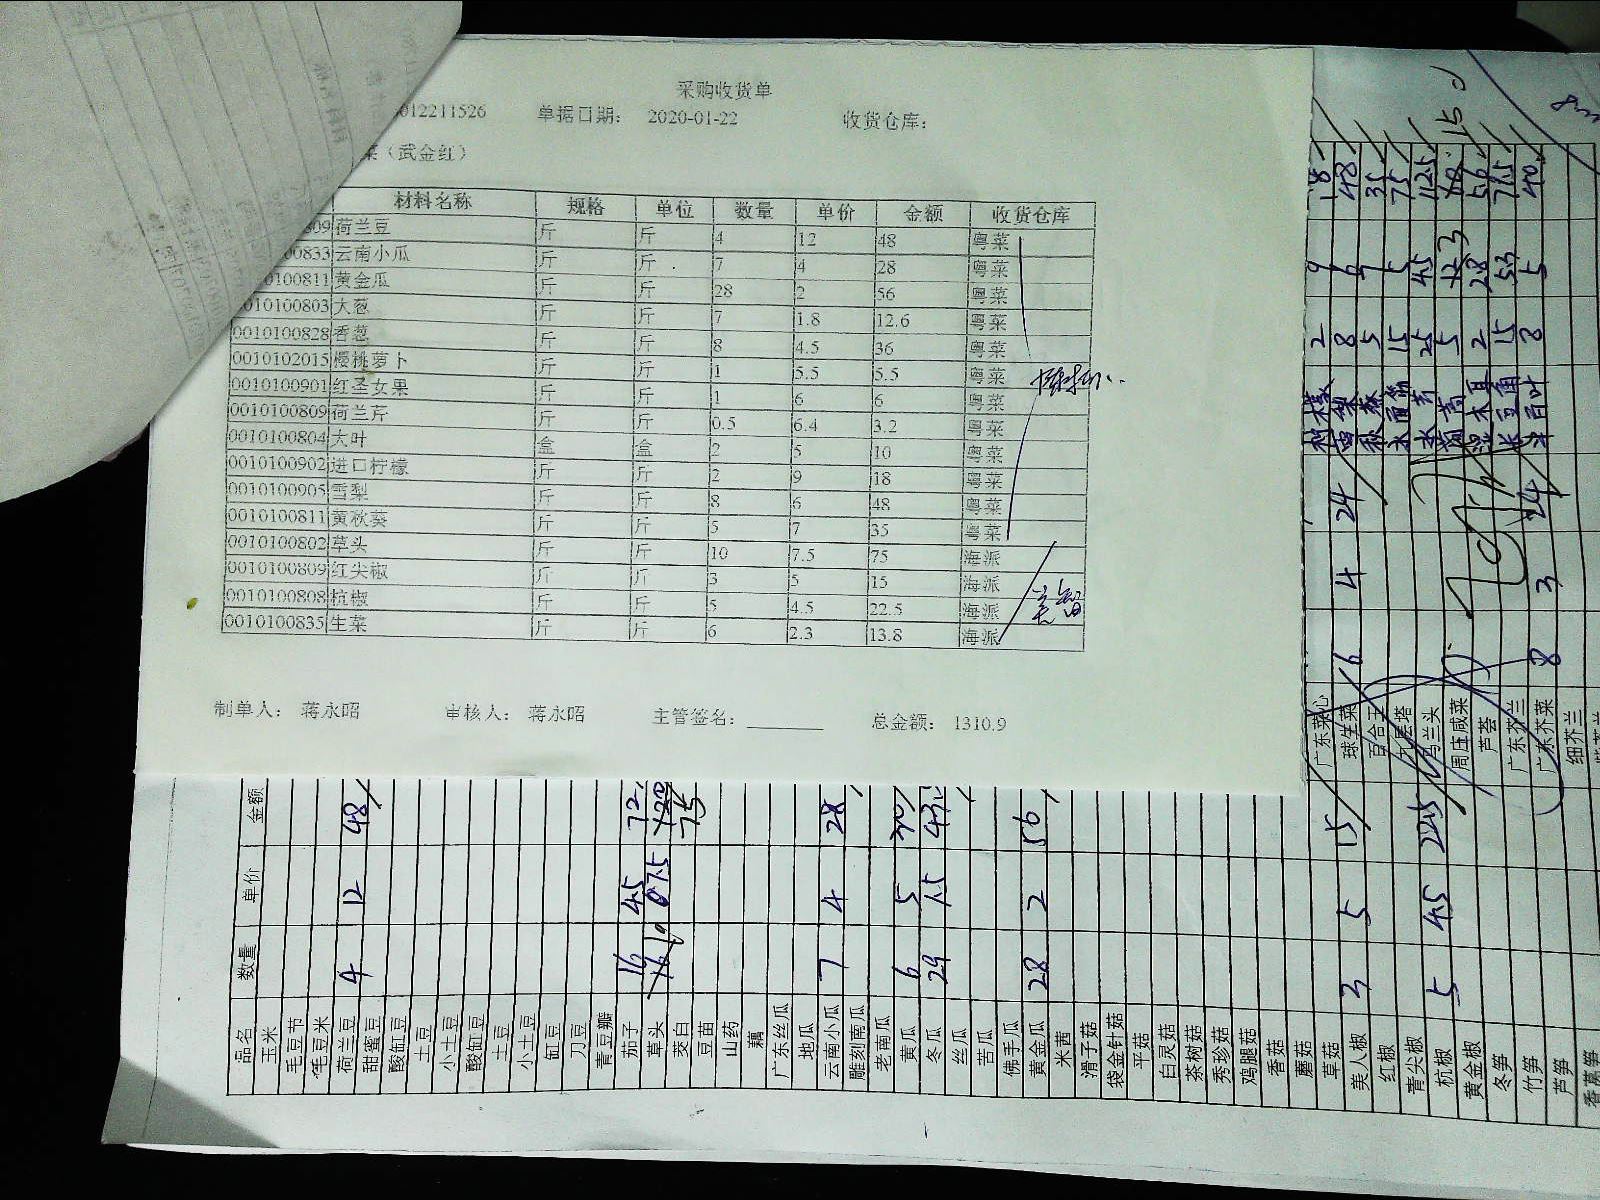 采购收货单
012211526 单据日期: 2020-01-22 收货仓库:
菜（武金红）
材料名称 规格 单位 数量 单价 金额 收货仓库
809 荷兰豆 斤 斤 4 12 48 粤菜
00833 云南小瓜 斤 斤 7 4 28 粤菜
0100811 黄金瓜 斤 斤 28 2 56 粤菜
010100803 大葱 斤 斤 7 1.8 12.6 粤菜
0010100828 香葱 斤 斤 8 4.5 36 粤菜
0010102015 樱桃萝卜 斤 斤 1 5.5 5.5 粤菜
0010100901 红圣女果 斤 斤 1 6 6 粤菜
0010100809 荷兰芹 斤 斤 0.5 6.4 3.2 粤菜
0010100804 大叶 盒 盒 2 5 10 粤菜
0010100902 进口柠檬 斤 斤 2 9 18 粤菜
0010100905 雪梨 斤 斤 8 6 48 粤菜
0010100811 黄秋葵 斤 斤 5 7 35 粤菜
0010100802 草头 斤 斤 10 7.5 75 海派
0010100809 红尖椒 斤 斤 3 5 15 海派
0010100808 杭椒 斤 斤 5 4.5 22.5 海派
0010100835 生菜 斤 斤 6 2.3 13.8 海派
制单人: 蒋永昭 审核人: 蒋永昭 主管签名: 总金额: 1310.9
品名 数量 单价 金额
玉米
毛豆节
毛豆米
荷兰豆 4 12 48
甜蜜豆
酸缸豆
土豆
小土豆
酸缸豆
土豆
小土豆
缸豆
刀豆
青豆瓣
茄子 16 4.5 72
草头 10 7.5 75
茭白
豆苗
山药
藕
广东丝瓜
地瓜
云南小瓜 7 4 28
雕刻南瓜
老南瓜
黄瓜 6 5 30
冬瓜 29 1.5
丝瓜
苦瓜
佛手瓜
黄金瓜 28 2 56
米茜
滑子菇
袋金针菇
平菇
白灵菇
茶树菇
秀珍菇
鸡腿菇
香菇
蘑菇
草菇
美人椒 3 5 15
红椒
青尖椒
杭椒 5 4.5 22.5
黄金椒
冬笋
竹笋
芦笋
广东菜心
球生菜 6 4 24
百合王
九层塔
马兰头
周庄咸菜
芦荟
广东芥兰
广东芥菜 8 3 24
细芥兰
2 9 18
8 6 48
5 7 35
15 5 75
25 4.5 112.5
木耳 2 28 56
8 5 40